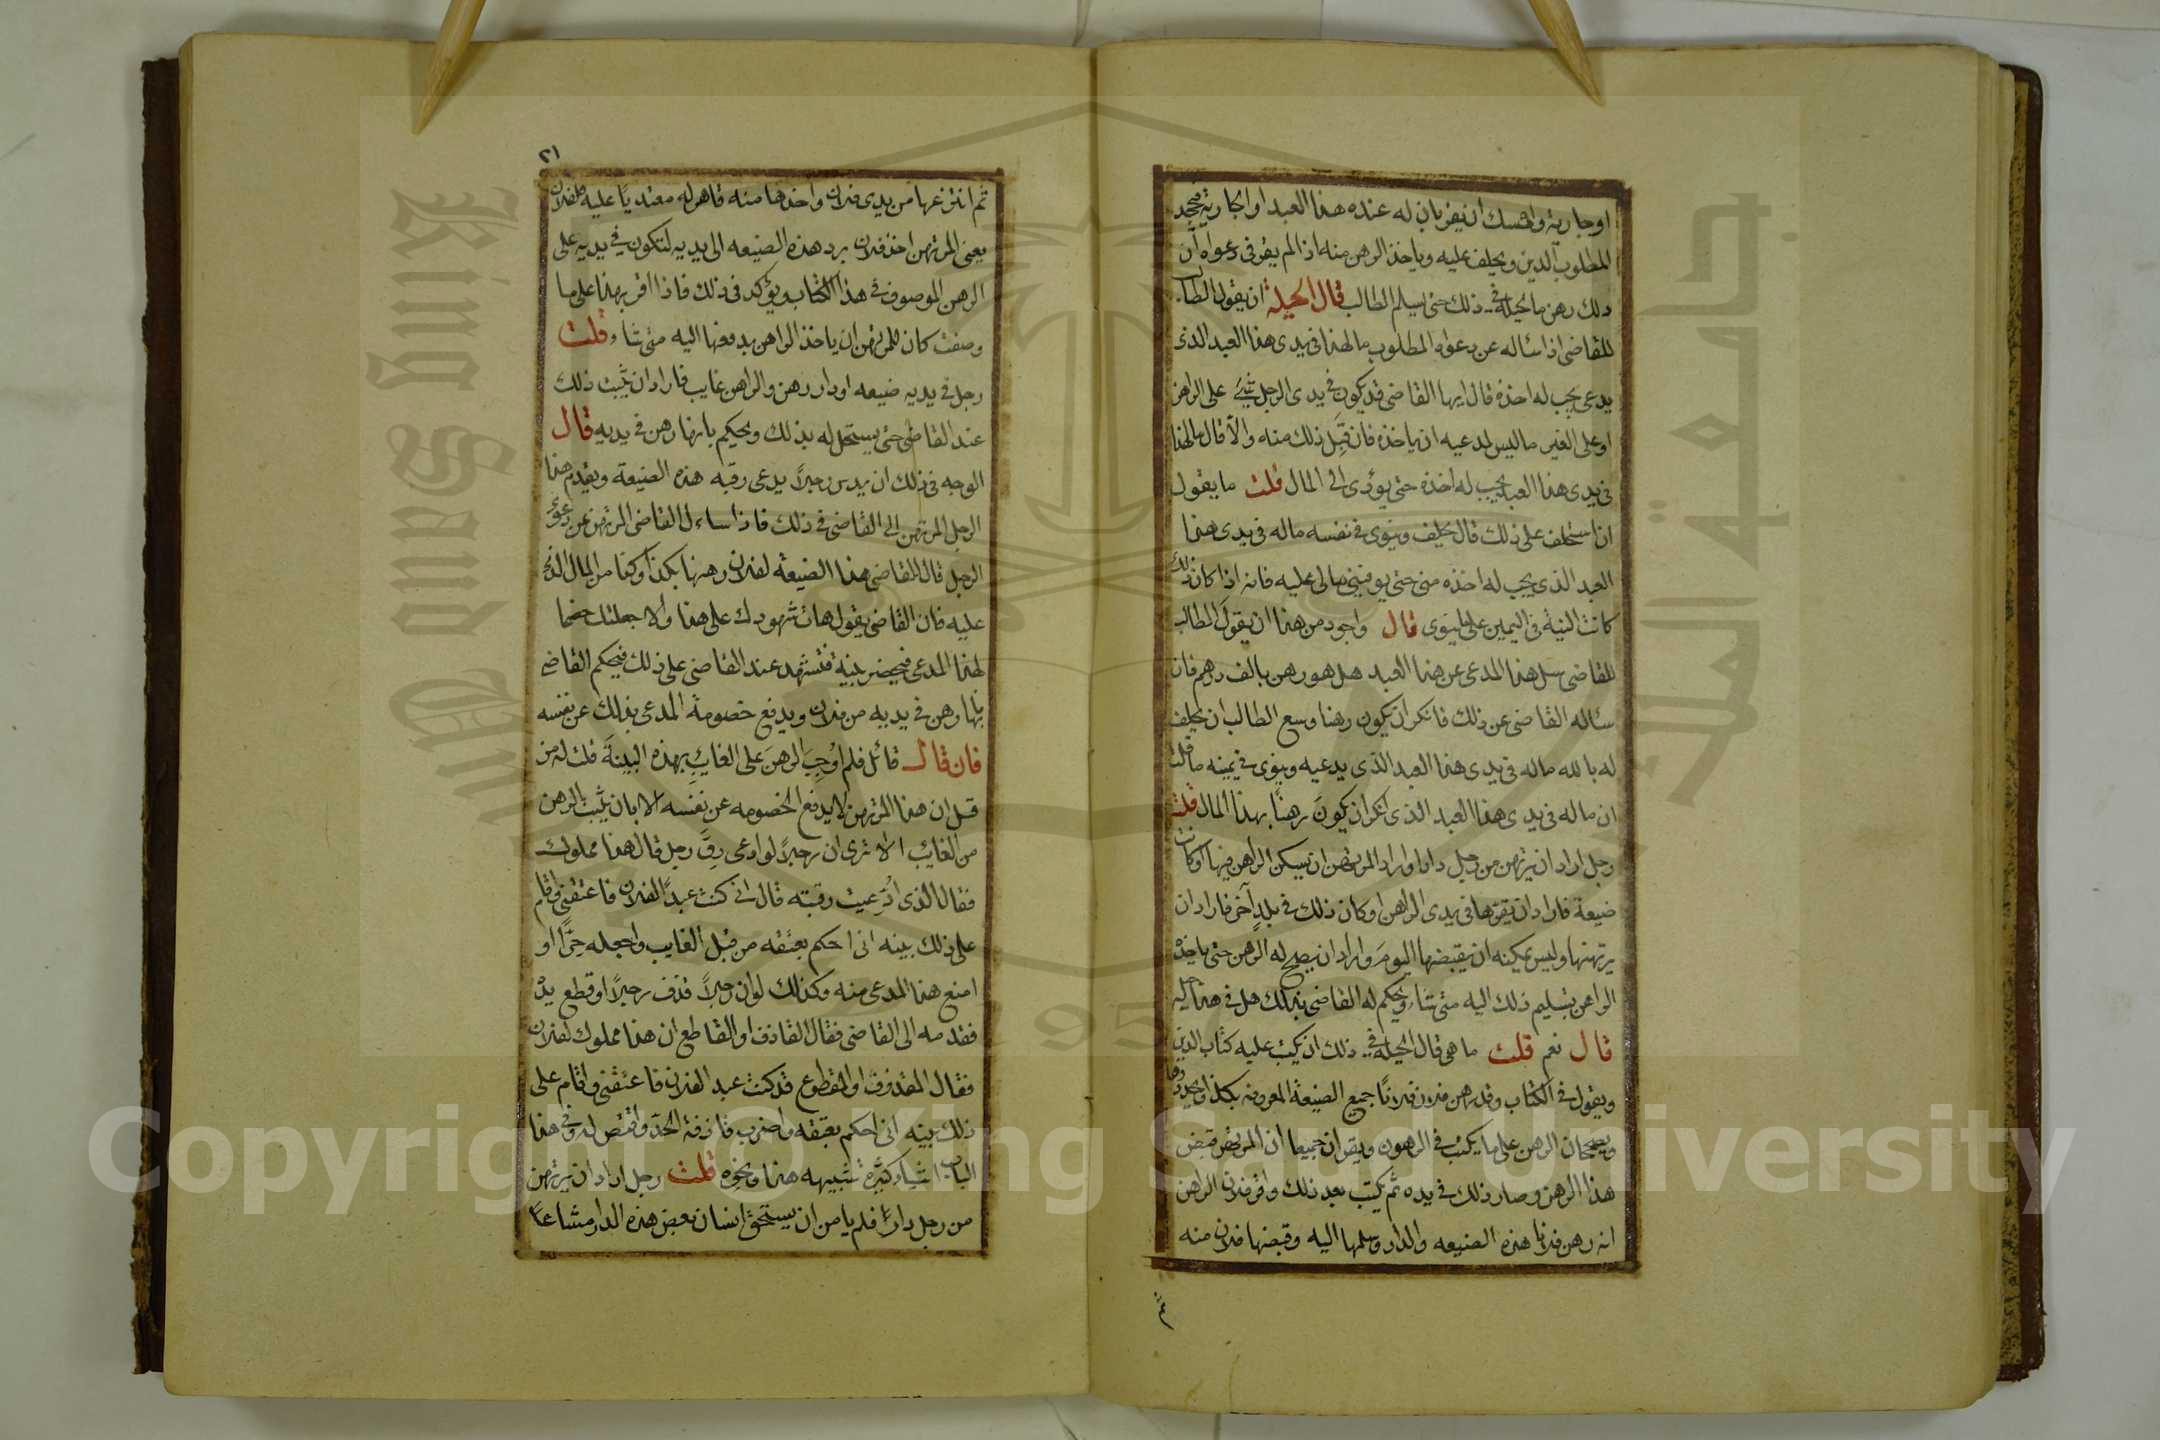 او جارية وامسك ان يقر بان له عنده هذا العبد او الجارية فجحد
المطلوب الدين ويحلف عليه وياخذ الرهن منه اذا لم يقر في دعواه ان
ذلك رهن ما الحيلة في ذلك حتى يسلم الطالب قال الحيلة ان يقول الطالب
للقاضي اذا ساله عن دعواه المطلوب ما لهذا في يدي هذا العبد الذي
يدعي يجب له اخذه قال ايها القاضي قد يكون في يدي الرجل شيء على الراهن
او على الغير ما ليس لمدعيه ان ياخذه فان قبل ذلك منه والا قال ما لهذا
في يدي هذا العبد يجب له اخذه حتى يودي الي المال قلت ما يقول
ان استحلف على ذلك قال يحلف وينوي في نفسه ماله في يدي هذا
العبد الذي يجب له اخذه مني حتى يوفيني مالي عليه فانه اذا كان ذلك
كانت النية في اليمين على ما ينوى قال واجود من هذا ان يقول المطالب
للقاضي سل هذا المدعي عن هذا العبد هل هو رهن بالف درهم فان
ساله القاضي عن ذلك فانكر ان يكون رهنا وسع الطالب ان يحلف
له بالله ماله في يدي هذا العبد الذي يدعيه وينوي في يمينه ما قلت
ان ماله في يدي هذا العبد الذي انكر ان يكون رهنا بهذا المال قلت
رجل اراد ان يرتهن من رجل دارا واراد المرتهن ان يسكن الراهن فيها او كانت
ضيعة فاراد ان يقرها في يدي الراهن او كان ذلك في بلد آخر فاراد ان
يرتهنها وليس يمكنه ان يقبضها اليوم واراد ان يصح له الرهن حتى ياخذ
الراهن بتسليم ذلك اليه متى شاء ويحكم له القاضي بذلك هل في هذا حيلة
قال نعم قلت ما هي قال الحيلة في ذلك ان يكتب عليه كتاب الدين
ويقول في الكتاب وقد رهن فلان فلانا جميع الضيعة المعروفة بكذا ويحدوها
ويصححان الرهن على ما يكتب في الرهون ويقران جميعا ان المرتهن قبض
هذا الرهن وصار ذلك في يده ثم يكتب بعد ذلك واقر فلان الراهن
انه رهن فلانا هذه الضيعه والدار وسلمها اليه وقبضها فلان منه
ثم
٢١
ثم انتزعها من يدي فلان واخذها منه قاهر له معتديا عليه فلفلان
يعني المرتهن اخذ فلان برد هذه الضيعه الى يديه لتكون في يديه على
الرهن الموصوف في هذا الكتاب ويؤكد في ذلك فاذا اقر بهذا على ما
وصفت كان للمرتهن ان ياخذ الراهن بدفعها اليه متى شاء قلت
رجل في يديه ضيعه او دار رهن والراهن غايب فاراد ان يثبت ذلك
عند القاضي حتى يستحل له بذلك ويحكم بانها رهن في يديه قال
الوجه في ذلك ان يدس رجلا يدعى رقبه هذه الضيعة ويقدم هذا
الرجل المرتهن الى القاضي في ذلك فاذا ساءل القاضي المرتهن عن دعوى
الرجل قال للقاضي هذا الضيعة لفلان رهنها بكذا وكذا من المال الذي
عليه فان القاضي يقول هات شهودك على هذا والا جعلتك خصما
لهذا المدعي فيحضر بينة فتشهد عند القاضي على ذلك فيحكم القاضي
بانها رهن في يديه من فلان ويدفع خصومة المدعى بذلك عن نفسه
فان قال قائل فلم اوجب الرهن على الغايب بهذه البينة قلت له من
قبل ان هذا المرتهن لا يدفع الخصومه عن نفسه الا بان يثبت الرهن
من الغائب الا ترى ان رجلا لو ادعى رق رجل قال هذا مملوك
فقال الذي ادعيت رقبته قال اني كنت عبدا لفلان فاعتقني واقام
على ذلك بينه اني احكم بعتقه من قبل الغايب واجعله حرا او
امنع هذا المدعي منه وكذلك لو ان رجلا قذف رجلا او قطع يده
فقدمه الى القاضي فقال القاذف او القاطع ان هذا مملوك لفلان
فقال المقذوف او المقطوع قد كنت عبد الفلان فاعتقني واقام على
ذلك بينه اني احكم بعتقه واضرب قاذفه الحد واقتص له وفي هذا
الباب اشياء كثيرة تشبيهه هذا ونحوه قلت رجل اراد ان يرتهن
من رجل دارا فلم يامن ان يستحق انسان بعض هذه الدار مشاعا
Copyright © King Saud University
King Saud University
جامعة الملك سعود
195